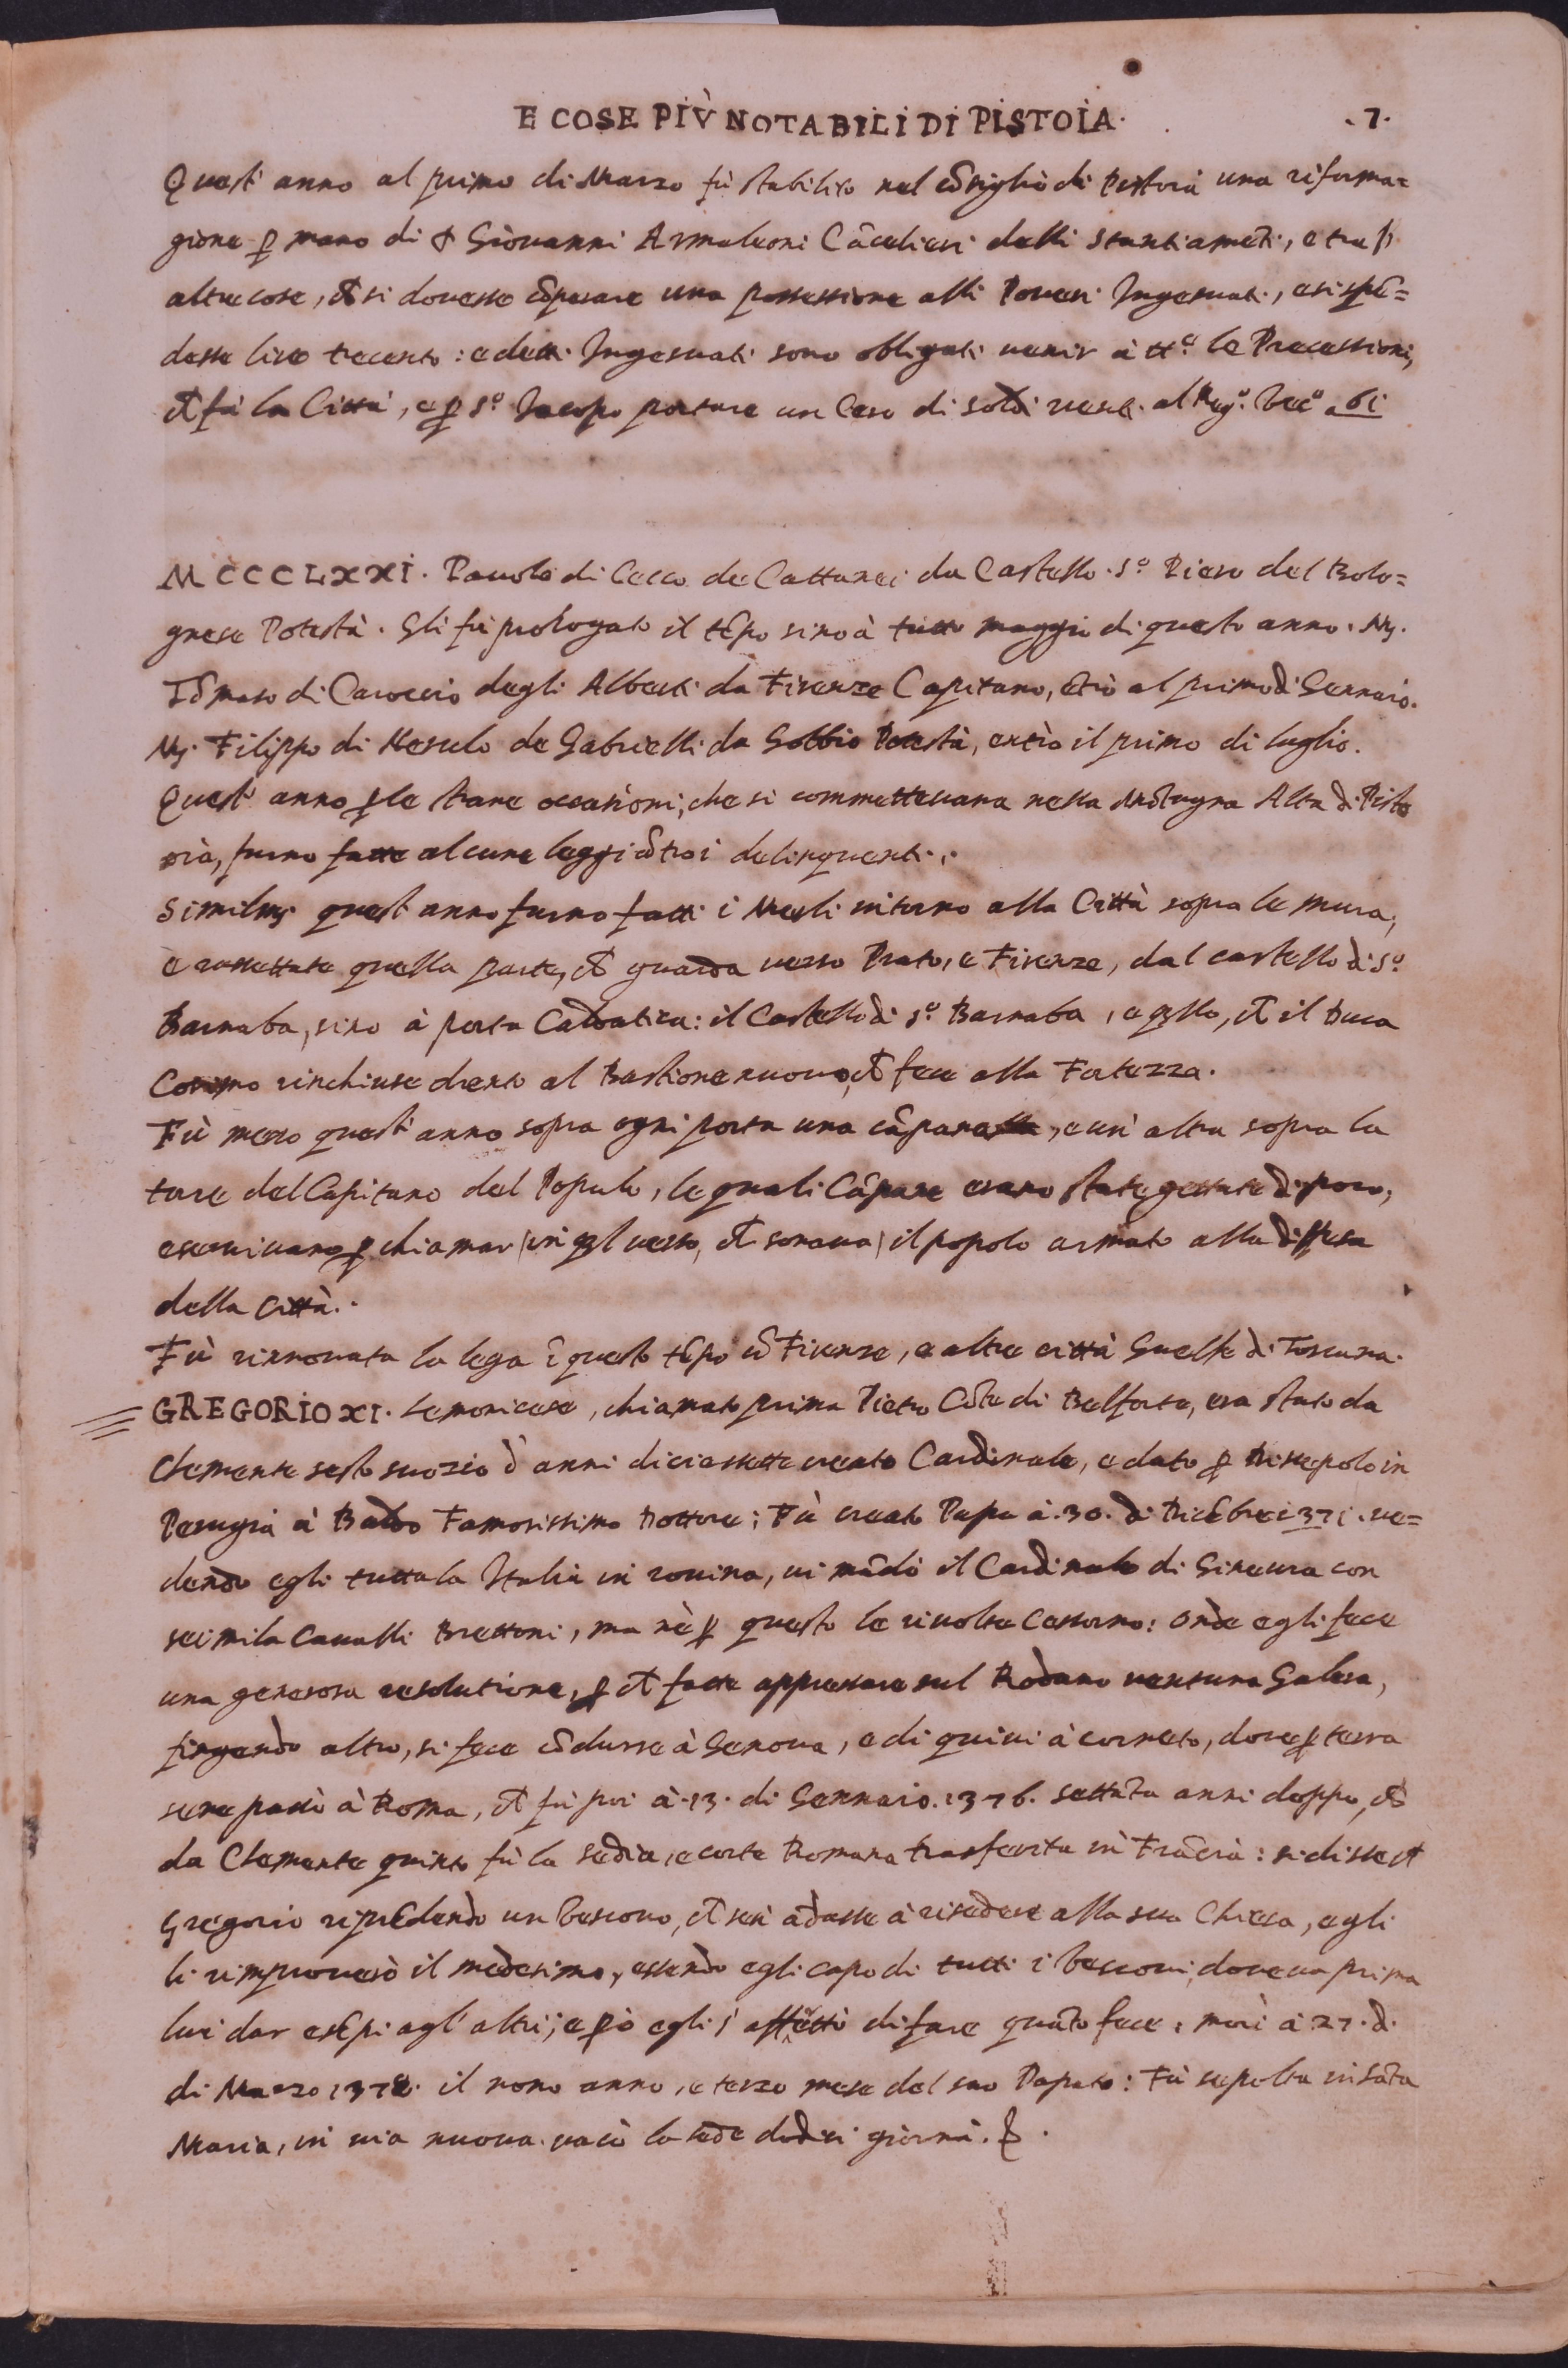 E COSE PIÙ NOTABILI DI PISTOIA. .7.
Quest' anno al primo di Marzo fù stabilito nel cōsiglio di Pistoia una riforma=
gione ꝑ mano di Giovanni Armaleoni Cācelieri delli stantiamēti, e tra
altre cose, ch̄ si dovesse cōperare una possessione alli Poveri Ingesuati, e si spē=
desse lire trecento: e detti Ingesuati sono obligati venir à tt.e le Processioni,
ch̄ fà la Città, e ꝑ S.o Jacopo portare un Cero di soldi venti. al Reg.o Vec.o a 61
MCCCLXXI. Pavolo di Cecco de Cattanei da Castello S.o Piero del Bolo=
gnese Potestà. Gli fù prologato il tēpo sino à tutto maggio di questo anno. M.
Tōmaso di Caroccio degli Alberti da Firenze Capitano, ētrò al primo di Gennaio.
M. Filippo di de Gabrielli da Gobbio Potestà, entrò il primo di luglio.
Quest' anno ꝑ le strane occasioni, che si commettevana nella Mōtagna Alta di Pisto
oia, furno fatte alcune leggi cōtro i delinquenti.
Similm. quest' anno furno fatti i Merli intorno alla Città sopra le mura,
e rassettata quella parte, ch̄ guarda verso Prato, e Firenze, dal castello di S.o
Barnaba, sino à porta Caldatica: il Castello di S.o Barnaba, è q̄llo, ch̄ il Duca
Cosimo rinchiuse drento al Bastione nuovo, ch̄ fece alla Fortezza.
Fù messo quest' anno sopra ogni porta una cāpanella, e un' altra sopra la
torre del Capitano del Populo, le quali Cāpane erano state gettate di poco,
e servivano ꝑ chiamar (in q̄l verso, ch̄ sonava) il popolo armato alla diffesa
della Città.
Fù rinnovata la lega ī questo tēpo cō Firenze, e altre città Guelfe di Toscana.
GREGORIO XI. Lemonicese, chiamato prima Pietro Cōte di Belforte, era stato da
Clemente sesto suo zio d' anni diciassette creato Cardinale, e dato ꝑ Discepolo in
Perugia à Baldo Famosissimo Dottore; Fù creato Papa à .30. di Dicēbre 1371. ve=
dendo egli tutta la Italia in rovina, vi mādò il Cardinale di Ginevra con
seimila Cavalli Brettoni, ma nè ꝑ questo le rivolte cessorno: onde egli fece
una generosa resolutione, ꝑ ch̄ fatte appressare sul Rodano ventuna Galera,
fingendo altro, si fece cōdurre à Genova, e di quivi à corneto, dove ꝑ terra
sene passò à Roma, ch̄ fù poi à .13. di Gennaio .1376. settāta anni doppo, ch̄
da Clemente quinto fù la sedia, e corte Romana trasferita in Frācia: si disse ch̄
Gregorio riprēdendo un Vescovo, ch̄ sen' ādasse à risedere alla sua Chiesa, egli
li rimproverò il medesimo, essendo egli capo di tutti i Vescovi, doveva prima
lui dar esēpi agl' altri, e ꝑò egli s' affrettò di fare quāto fece, morì à 27. d.
di Marzo 1378. il nono anno, e terzo mese del suo Papato: Fù sepolto in Sāta
Maria, in via nuova. vacò la sede dodici giorni.